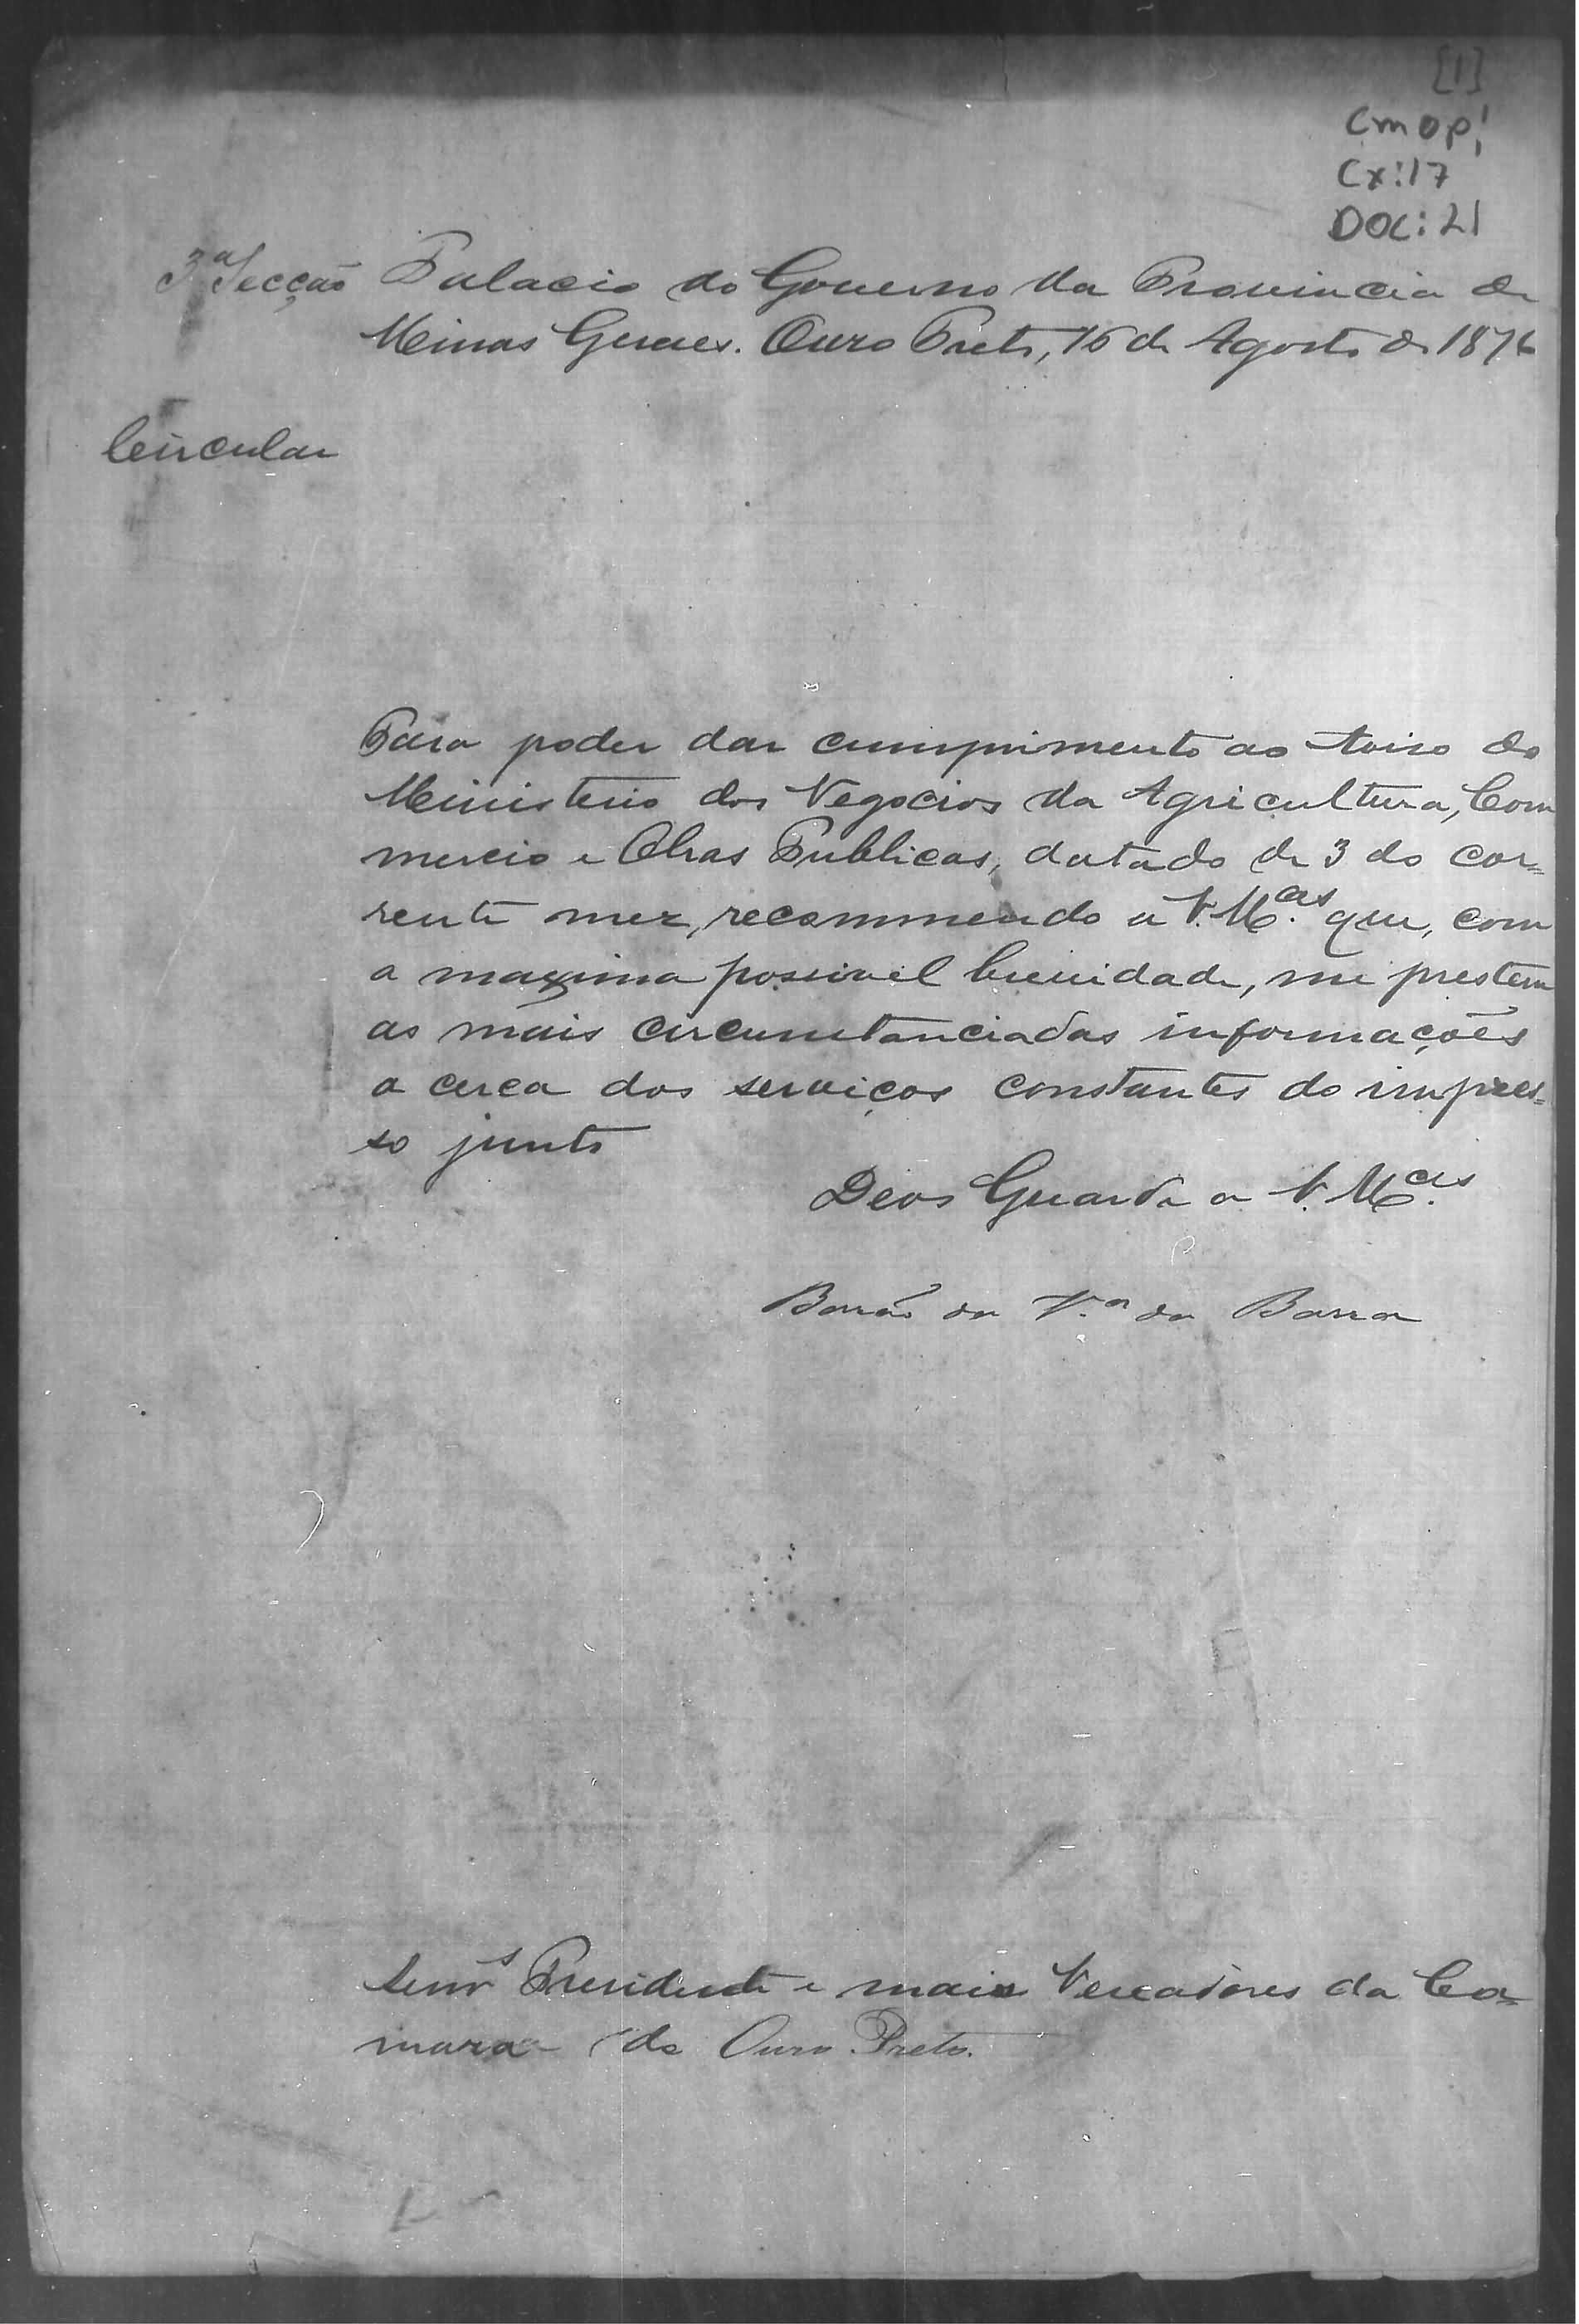 [1]
CMOP
Cx: 17
DOC: 21
3ª Secção Palacio do Governo da Provincia de
Minas Geraes. Ouro Preto, 16 de Agosto de 1876
Circular
Para poder dar cumprimento ao Aviso do
Ministerio dos Negocios da Agricultura, Com
mercio e Obras Publicas, datado de 3 do cor=
rente mez, recommendo a V. M.ces que, com
a maxima possivel brevidade, me prestem
as mais circumstanciadas informações
a cerca dos serviços constantes do impres=
so junto
Deos Guarde a V. M.ces
Barão da V.a da Barra
Senr.s Presidente e mais Vereadores da Ca=
mara de Ouro Preto.